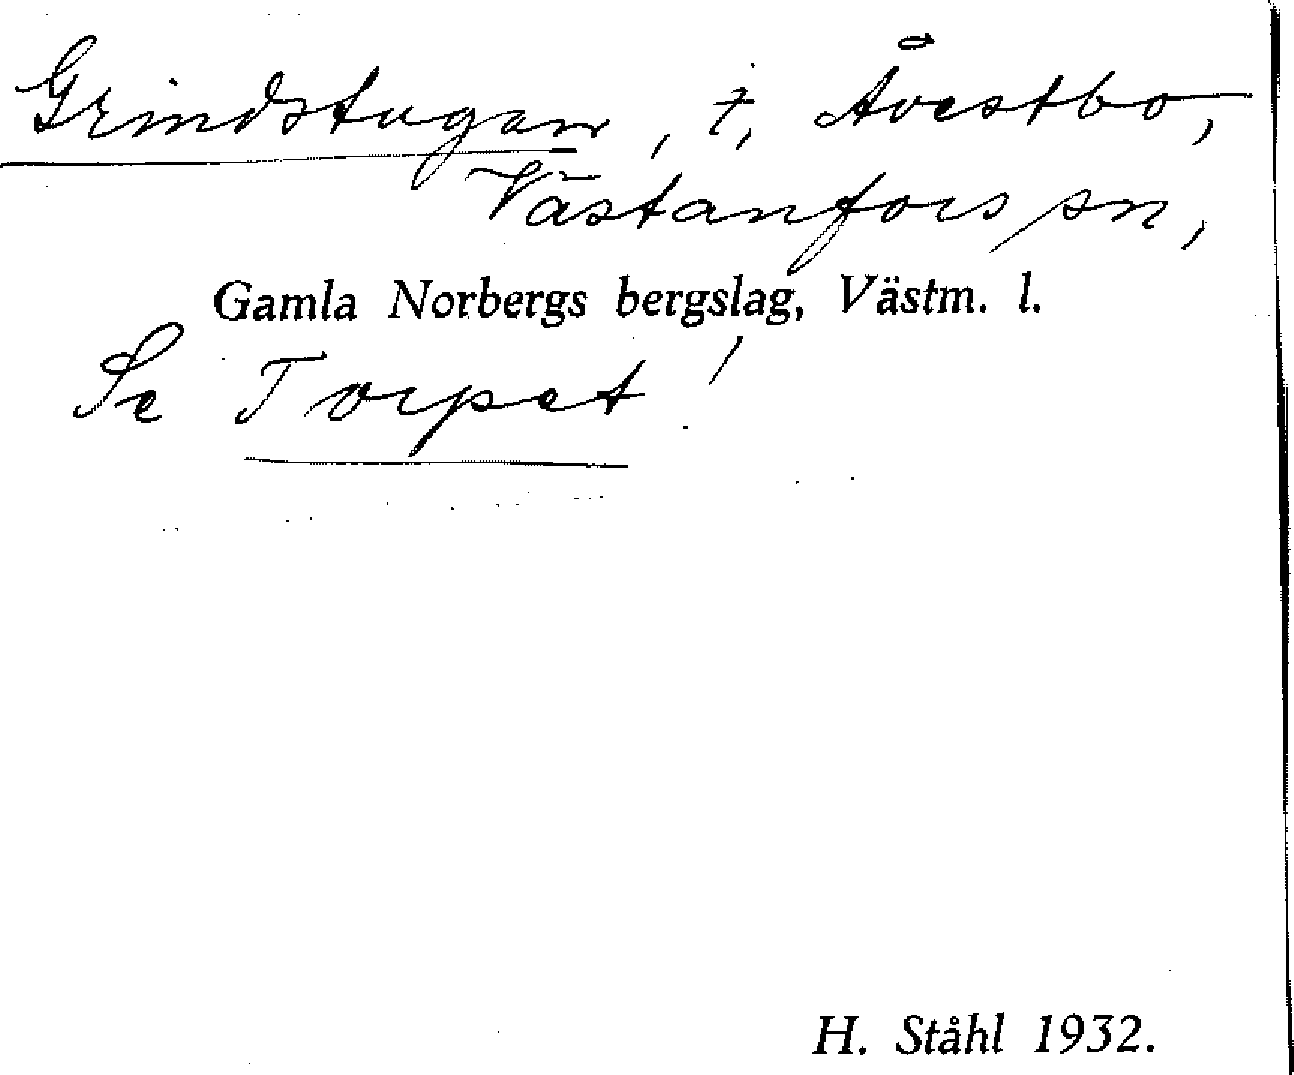 Grindstugan, t, Åvestbo,
Västanfors sn,
Gamla Norbergs bergslag, Västm. l.
Se Torpet!
H. Ståhl 1932.